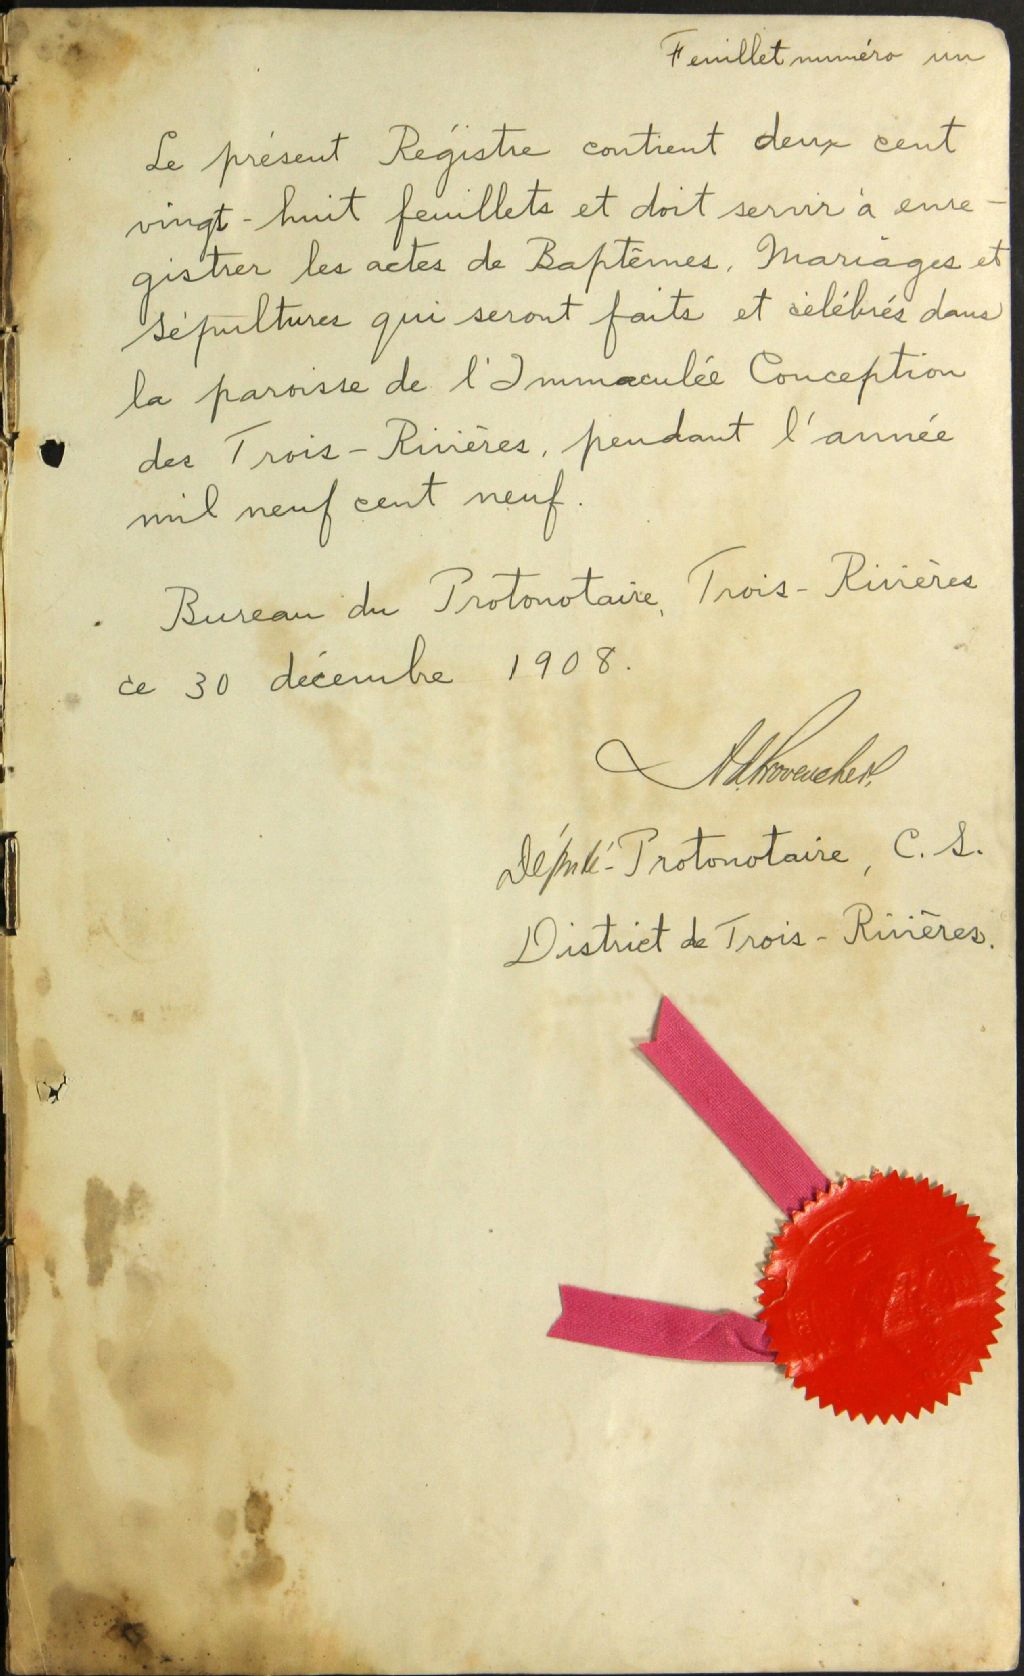 Feuillet numéro un
Le présent Régistre contient deux cent
vingt-huit feuillets et doit servir à enre-
gistrer les actes de Baptêmes, Mariages et
sépultures qui seront faits et célébrés dans
la paroisse de l'Immaculée Conception
des Trois-Rivières, pendant l'année
mil neuf cent neuf.
Bureau du Protonotaire, Trois-Rivières
ce 30 décembre 1908.
Provencher
Député-Protonotaire, C. S.
District de Trois-Rivières.